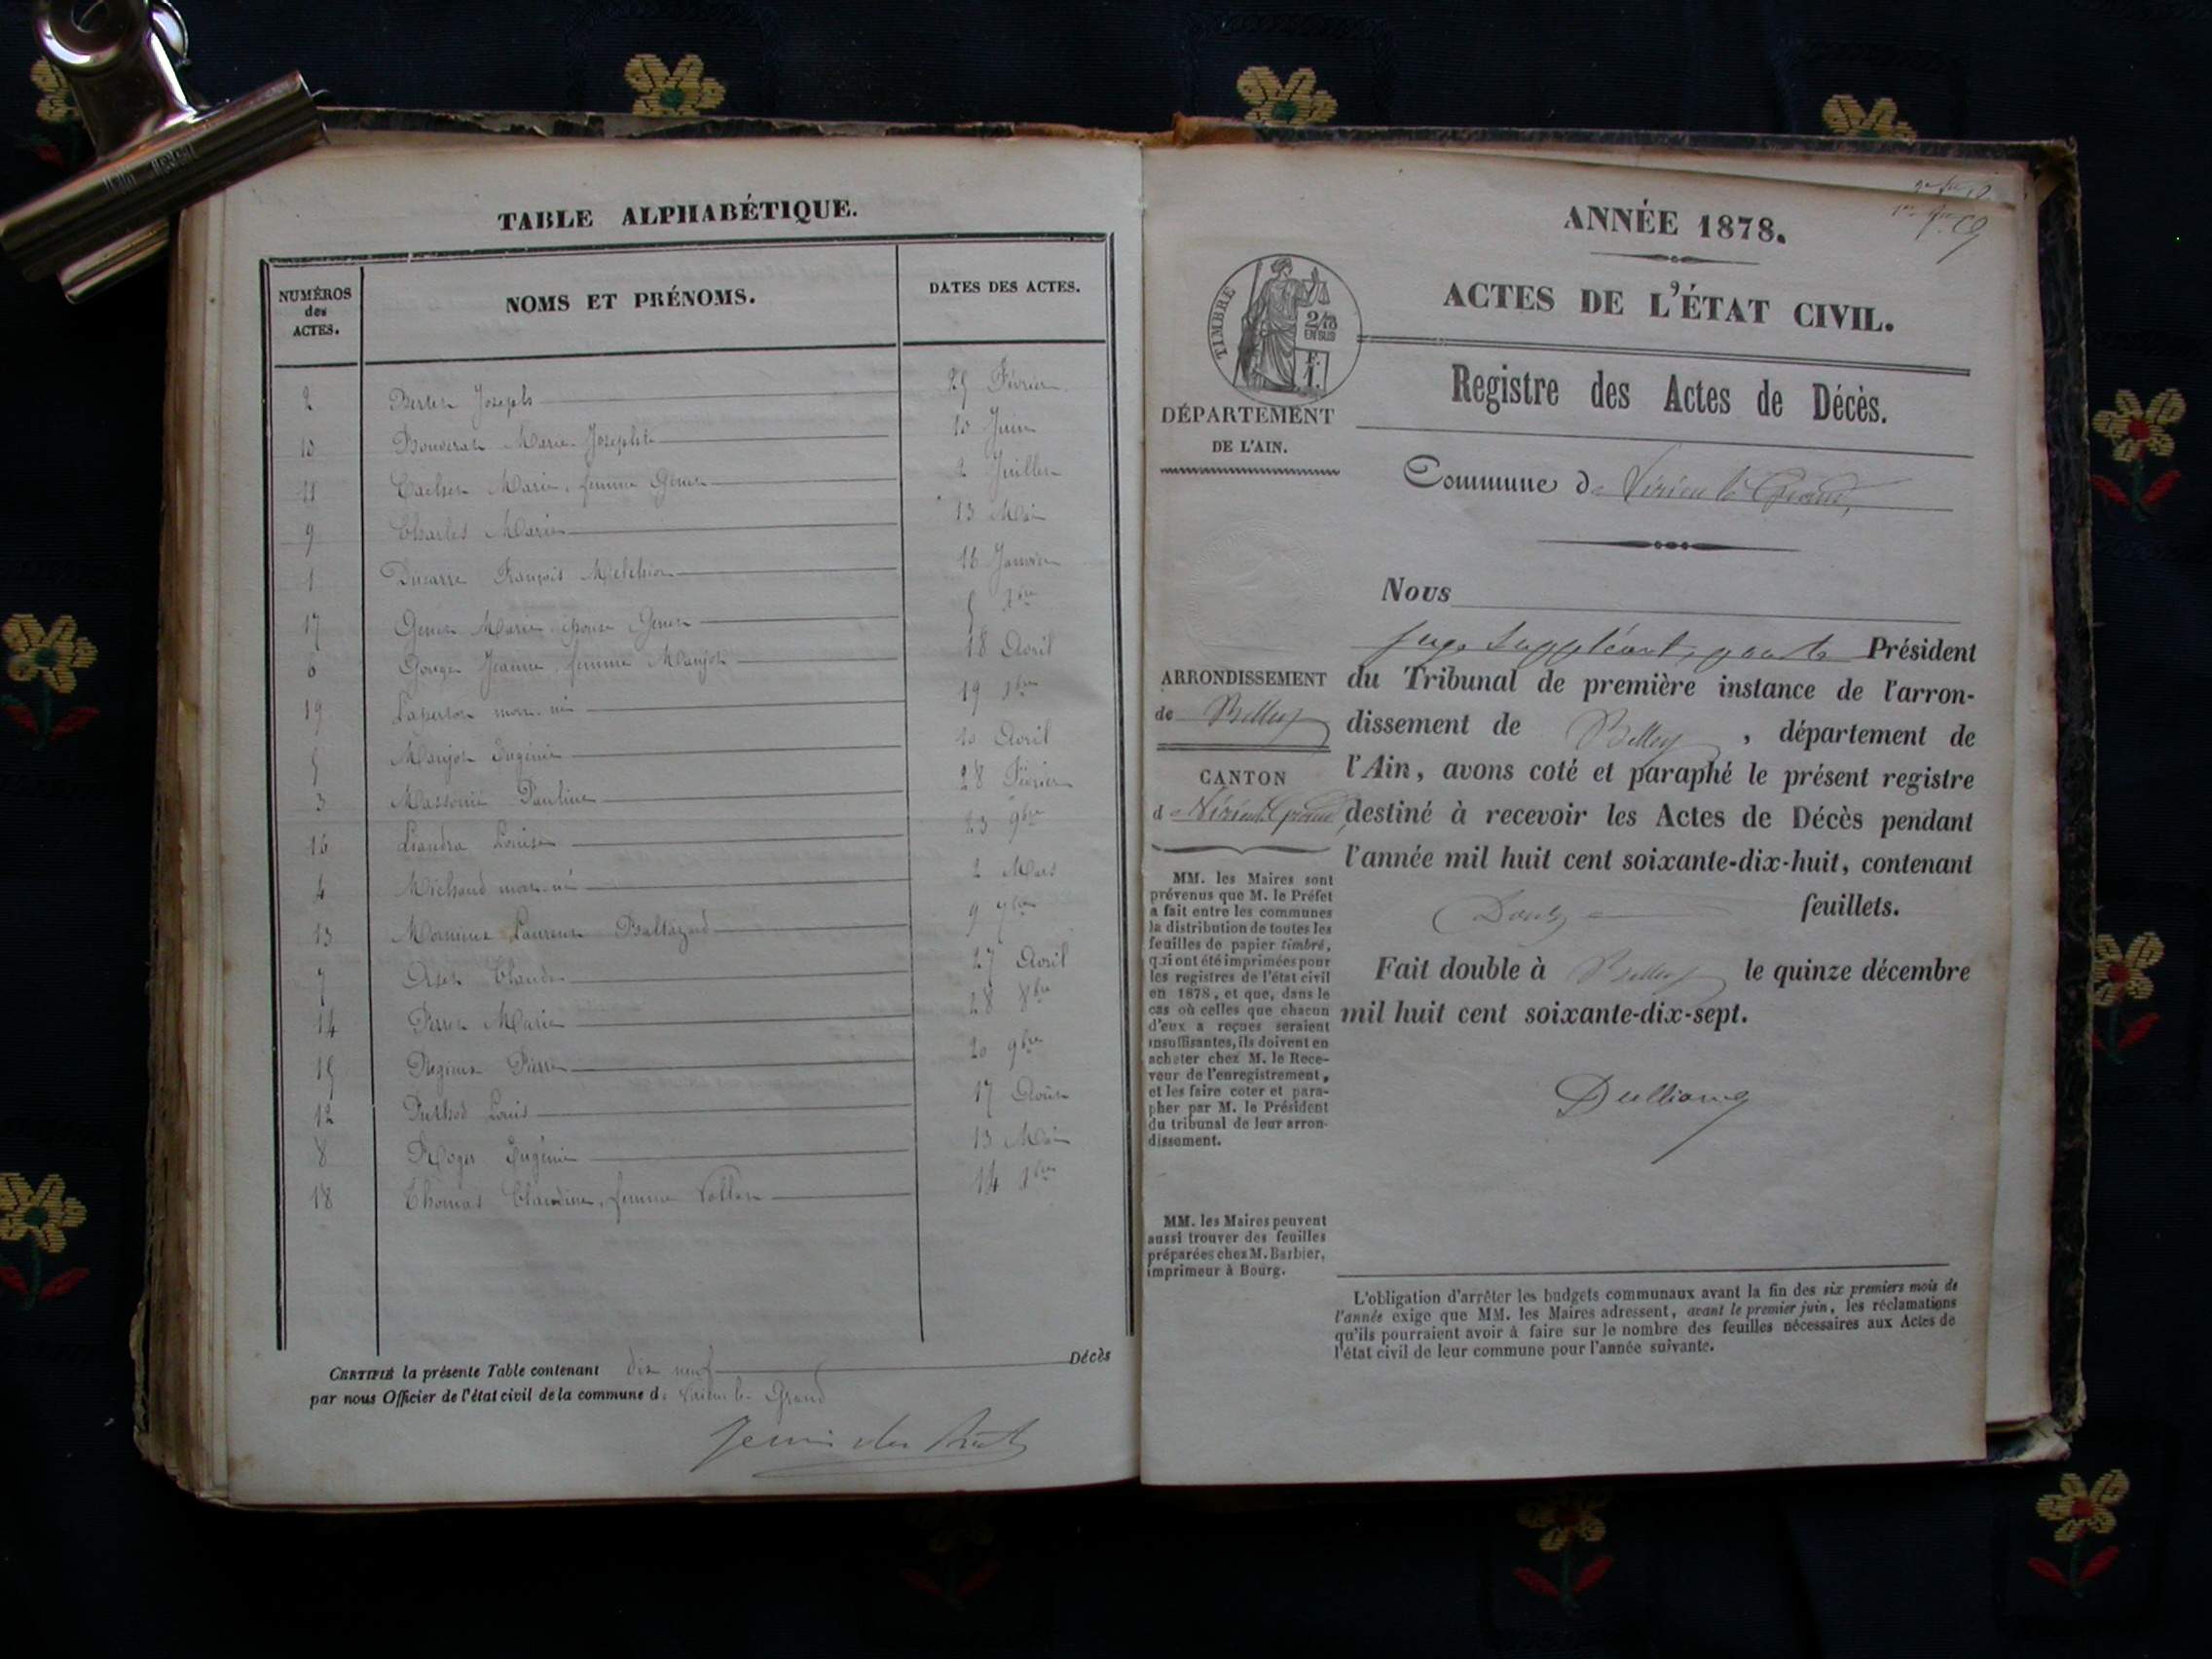 TABLE ALPHABÉTIQUE.
NUMÉROS des ACTES.
NOMS ET PRÉNOMS.
DATES DES ACTES.
2 Joseph 25 Février
10 Marie Josephte 10 Juin
11 Marie, femme Genet 2 Juillet
9 Charles Marie 13 Mai
1 Ducarre François Melchior 16 Janvier
17 Genet Marie épouse Genet 5 Xbre
6 Jeanne, femme Manjot 18 Avril
19 Laperton mort-né 19 Xbre
5 Manjot Eugénie 10 Avril
3 Pauline 28 Février
16 Liandra Louise 23 9bre
4 Michaud mort-né 2 Mars
13 Laurent Baltazard 9 7bre
7 Claude 27 Avril
14 Perret Marie 28 8bre
15 Pierre 20 9bre
12 Puthod Louis 17 Août
8 Roger Eugénie 13 Mai
18 Thomas Claudine, femme 14 Xbre
CERTIFIÉ la présente Table contenant dix neuf Décès
par nous Officier de l'état civil de la commune de Virieu le Grand
ANNÉE 1878.
ACTES DE L'ÉTAT CIVIL.
TIMBRE
2/10 EN SUS
F. 1.
DÉPARTEMENT
DE L'AIN.
Registre des Actes de Décès.
Commune de Virieu le Grand,
Nous
juge suppléant, pour le Président
ARRONDISSEMENT
de Belley
CANTON
de Virieu le Grand,
du Tribunal de première instance de l'arron-
dissement de Belley, département de
l'Ain, avons coté et paraphé le présent registre
destiné à recevoir les Actes de Décès pendant
l'année mil huit cent soixante-dix-huit, contenant
Douze feuillets.
Fait double à Belley le quinze décembre
mil huit cent soixante-dix-sept.
MM. les Maires sont
prévenus que M. le Préfet
a fait entre les communes
la distribution de toutes les
feuilles de papier timbré,
qui ont été imprimées pour
les registres de l'état civil
en 1878, et que, dans le
cas où celles que chacun
d'eux a reçues seraient
insuffisantes, ils doivent en
acheter chez M. le Rece-
veur de l'enregistrement,
et les faire coter et para-
pher par M. le Président
du tribunal de leur arron-
dissement.
MM. les Maires peuvent
aussi trouver des feuilles
préparées chez M. Barbier,
imprimeur à Bourg.
L'obligation d'arrêter les budgets communaux avant la fin des six premiers mois de
l'année exige que MM. les Maires adressent, avant le premier juin, les réclamations
qu'ils pourraient avoir à faire sur le nombre des feuilles nécessaires aux Actes de
l'état civil de leur commune pour l'année suivante.